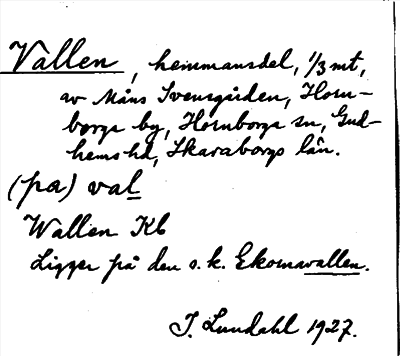 Vallen, hemmansdel, 1/3 mt,
av Måns Svensgården, Horn-
borga by, Hornborga sn, Gud-
hems hd, Skaraborgs län.
(pa) val
Wallen Kb
Ligger på den s. k. Ekornavallen.
I. Lundahl 1927.